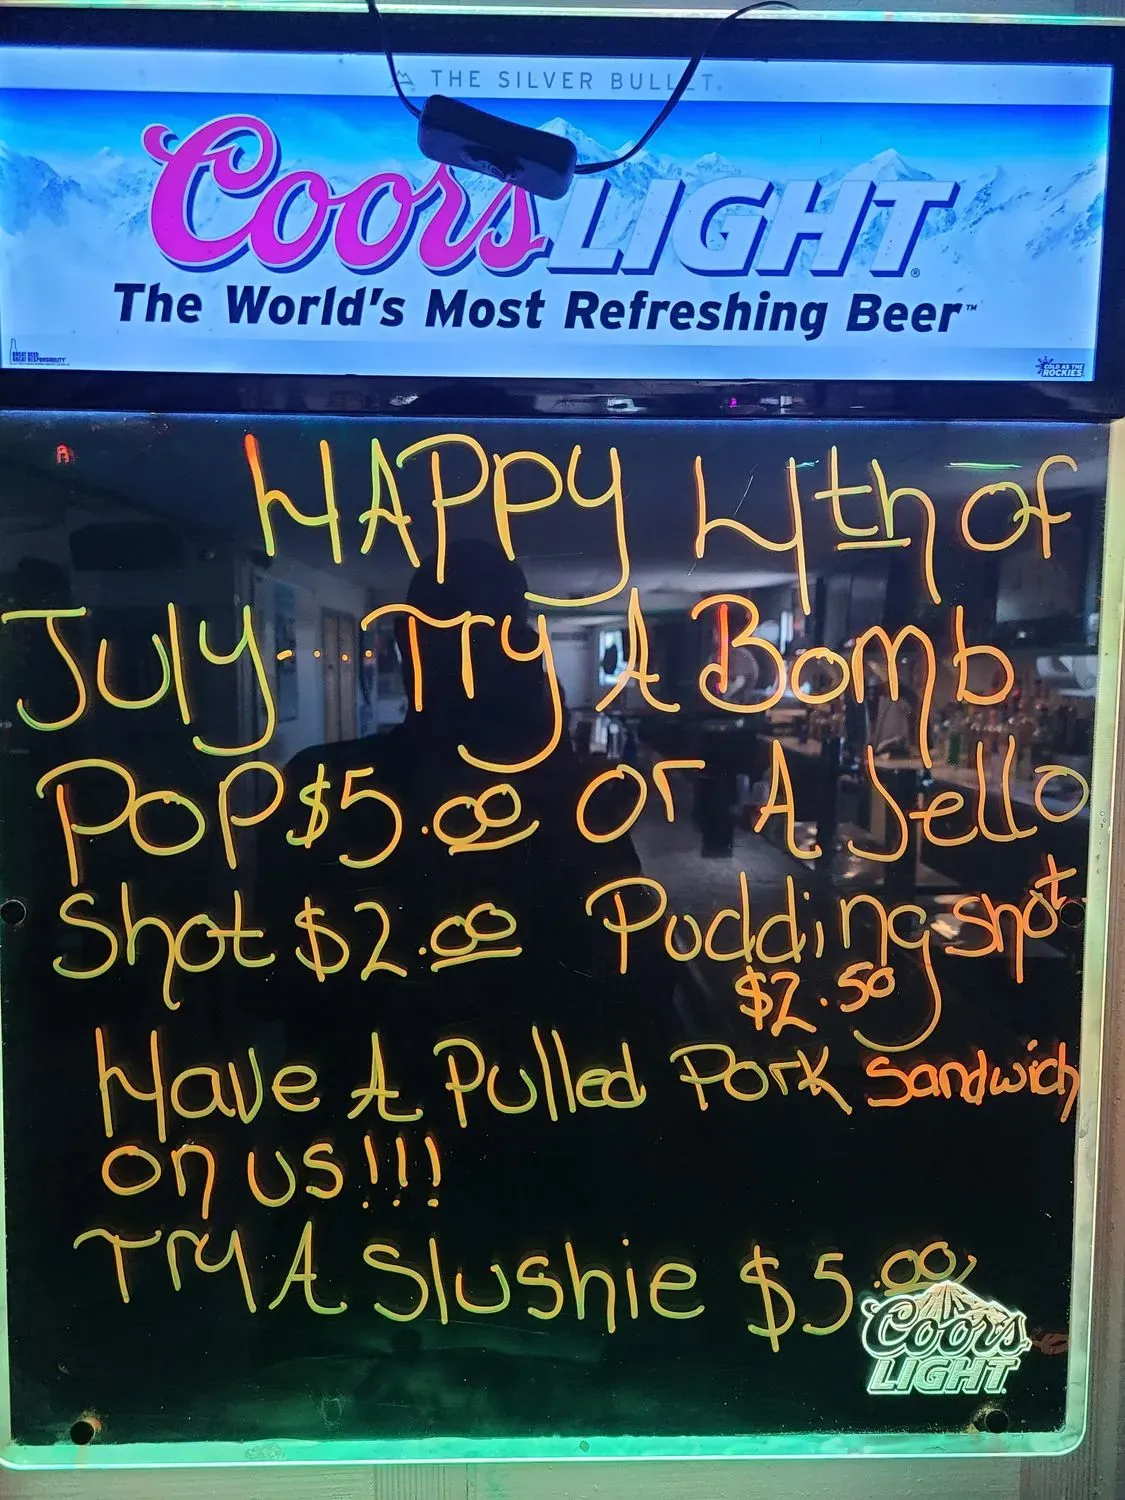 THE SILVER BULLET.
Coors LIGHT®
The World's Most Refreshing Beer™
GREAT BEER.
GREAT RESPONSIBILITY
COLD AS THE
ROCKIES
HAPPY 4th of
July....Try A Bomb
Pop $5.00 or A Jello
Shot $2.00 Pudding shot
$2.50
Have A Pulled Pork Sandwich
on us!!!
Try A Slushie $5.00
Coors
LIGHT